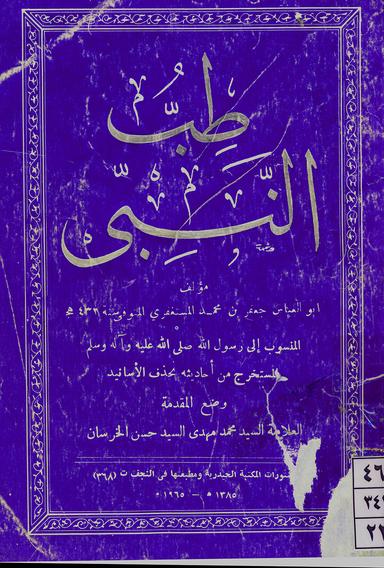 طِبُّ
النَّبِيّ
مؤلف
ابو العباس جعفر بن محمد المستغفري المتوفى سنة ٤٣٢ هـ
المنسوب إلى رسول الله صلى الله عليه وآله وسلم
المستخرج من أحاديثه بحذف الأسانيد
وضع المقدمة
العلامة السيد محمد مهدي السيد حسن الخرسان
منشورات المكتبة الحيدرية ومطبعتها في النجف ت (٣٦٨)
١٣٨٥ هـ - ١٩٦٥ م
٤٦
٣٤٢